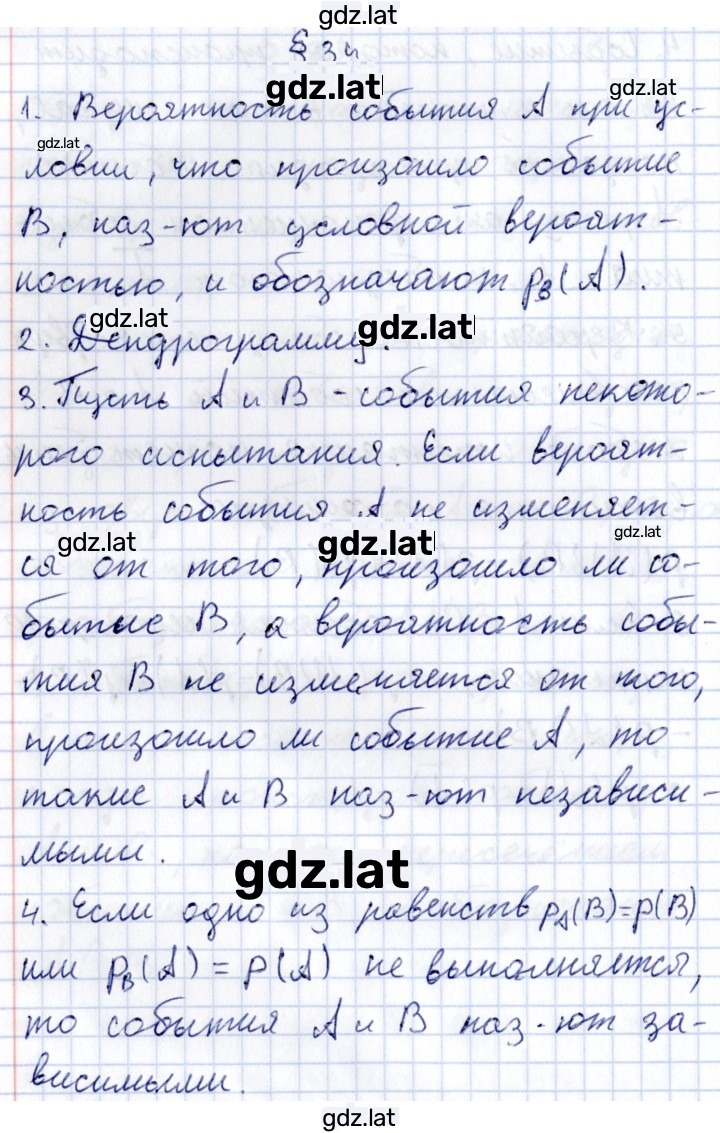 gdz.lat
§ 34
gdz.lat
gdz.lat
1. Вероятность события A при ус-
gdz.lat
ловии, что произошло событие
B, наз-ют условной вероят-
ностью, и обозначают p_B(A).
gdz.lat
gdz.lat
2. Дендрограмму.
3. Пусть A и B - события некото-
рого испытания. Если вероят-
ность события A не изменяет-
gdz.lat
gdz.lat
gdz.lat
ся от того, произошло ли со-
бытие B, а вероятность собы-
тия B не изменяется от того,
произошло ли событие A, то
такие A и B наз-ют независи-
мыми.
gdz.lat
4. Если одно из равенств p_A(B)=p(B)
или p_B(A)=p(A) не выполняется,
то события A и B наз-ют за-
висимыми.
gdz.lat